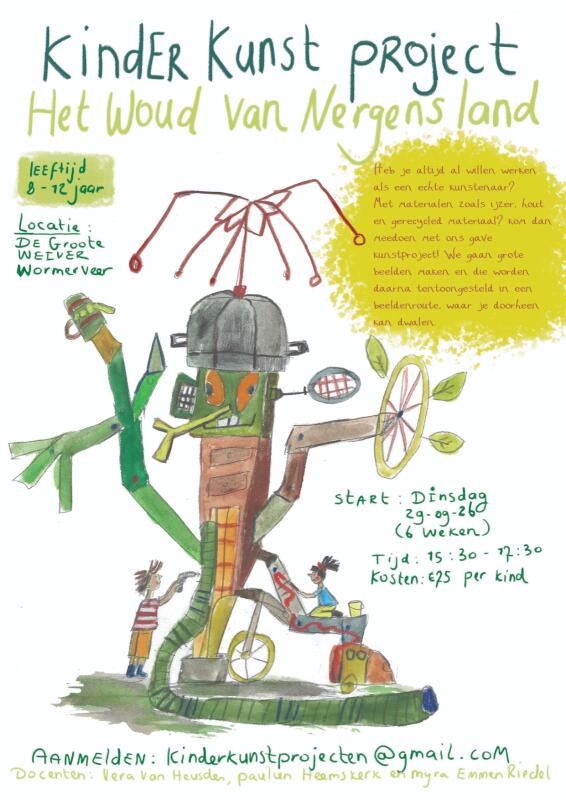 KindER Kunst project
Het Woud van Nergensland
leeftijd
8 - 12 jaar
Locatie :
DE Groote
WEIVER
Wormerveer
Heb je altijd al willen werken
als een echte kunstenaar?
Met materialen zoals ijzer, hout
en gerecycled materiaal? kom dan
meedoen met ons gave
kunstproject! We gaan grote
beelden maken en die worden
daarna tentoongesteld in een
beeldenroute, waar je doorheen
kan dwalen.
START : Dinsdag
29-09-26
(6 weken)
Tijd : 15:30 - 17:30
Kosten: €25 per kind
AANMELDEN: kinderkunstprojecten@gmail.com
Docenten: Vera van Heusden, paulien Heemskerk en myra Emmen Riedel